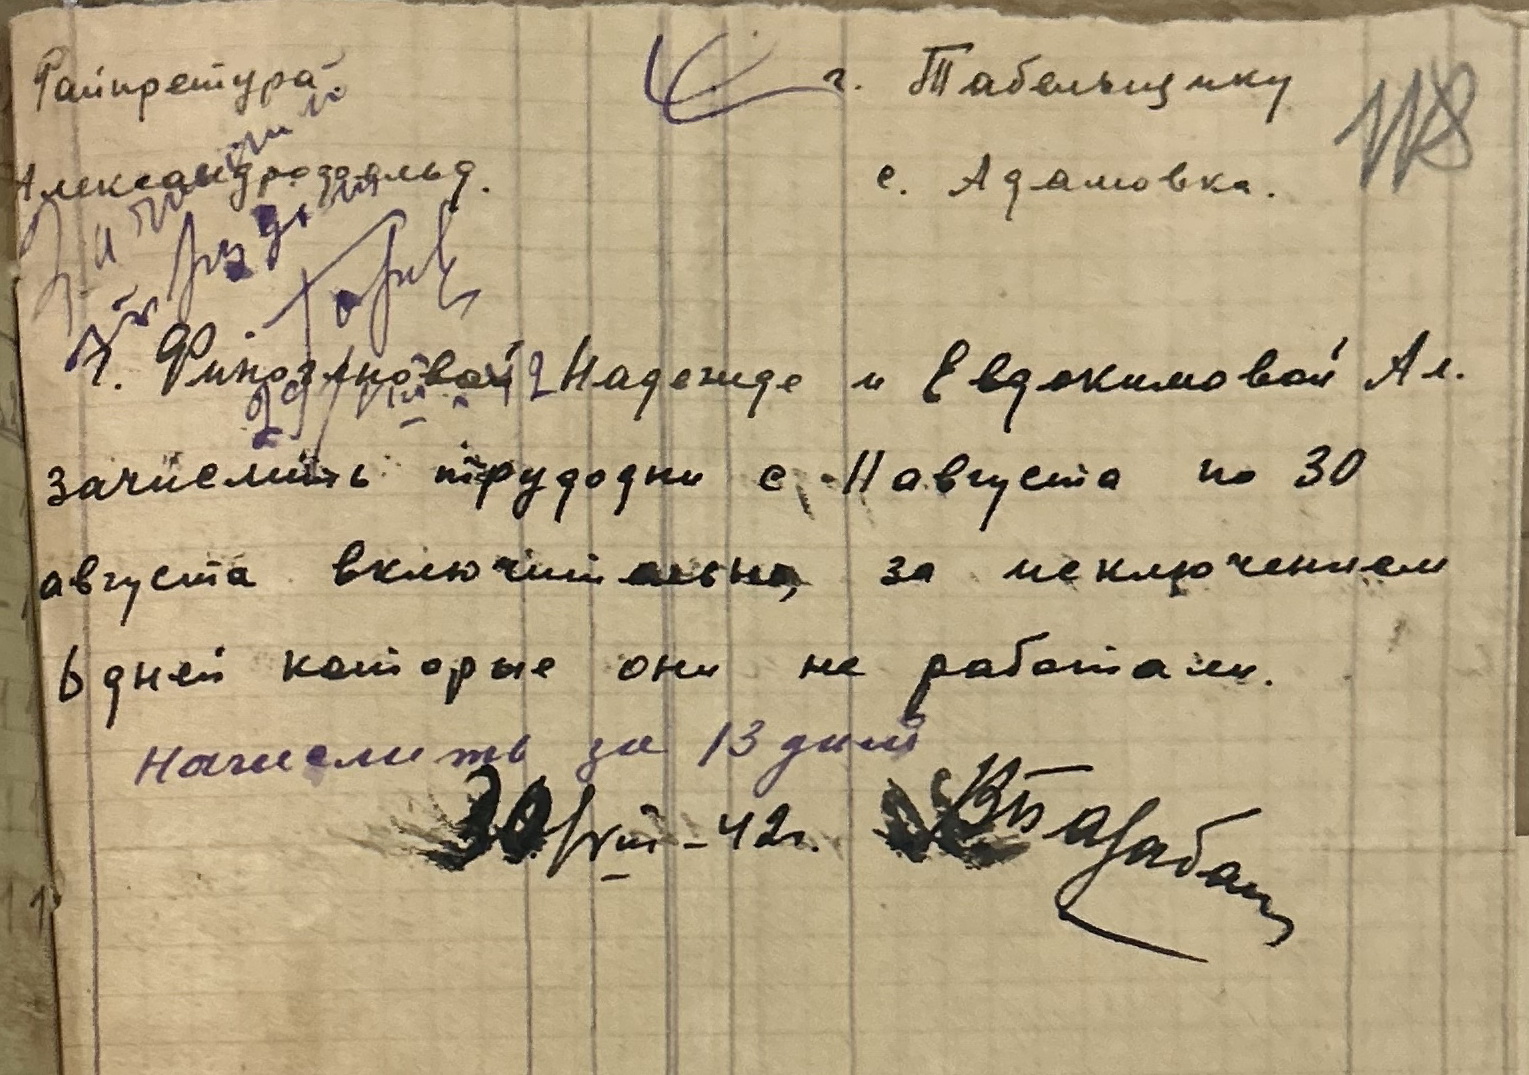 Райпретура
г. Табельщику
118
Александрфельд.
с. Адамовка.
г. Надежде и Евдокимовой Ал.
зачислить трудодни с 11 августа по 30
августа включительно, за исключением
6 дней которые они не работали.
Начислить за 13 дней
30/VIII-42г.